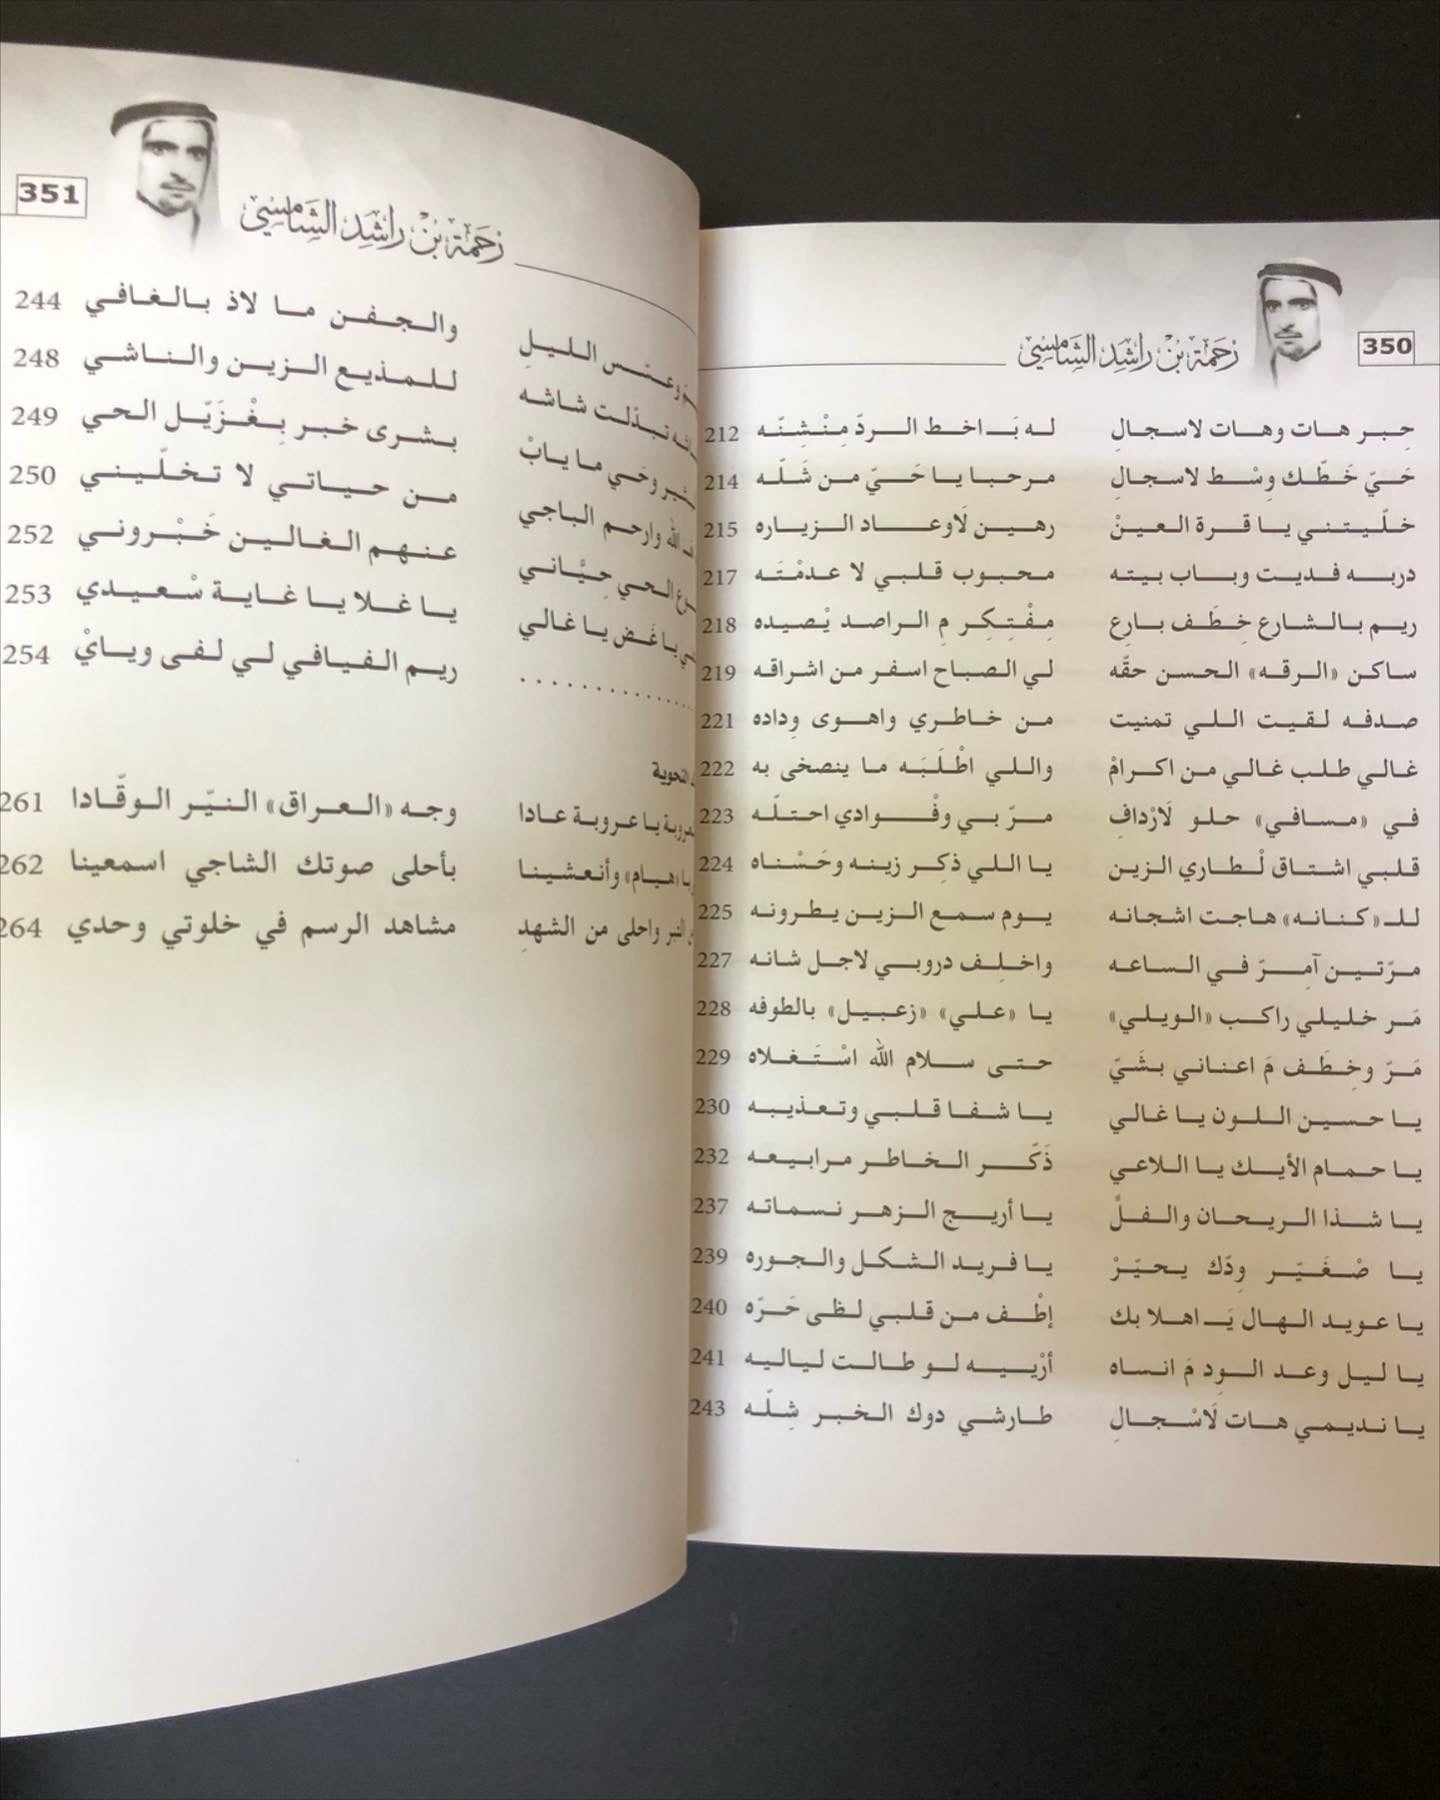 350
رحمة بن راشد الشامسي
حِبر هات وهات لاسجالِ له بَاخط الردّ مِنْشِنّه 212
حَيّ خَطّك وِسْط لاسجالِ مرحبا يا حَيّ من شَلّه 214
خلّيتني يا قرة العينْ رهين لَاوعاد الزياره 215
دربه فديت وباب بيته محبوب قلبي لا عدمْتَه 217
ريم بالشارع خِطَف بارِع مِفْتِكِر مِ الراصد يْصيده 218
ساكن «الرقه» الحسن حقّه لي الصباح اسفر من اشراقه 219
صدفه لقيت اللي تمنيت من خاطري واهوى وِداده 221
غالي طلب غالي من اكرامْ واللي اطْلَبَه ما ينصخى به 222
في «مسافي» حلو لَارْدافِ مرّ بي وفْوادي احتلّه 223
قلبي اشتاق لْطاري الزين يا اللي ذكِر زينه وحَسْناه 224
للـ«كنانه» هاجت اشجانه يوم سمع الزين يطرونه 225
مرّتين آمِرّ في الساعه واخلِف دروبي لاجل شانه 227
مَر خليلي راكب «الويلي» يا «علي» «زعبيل» بالطوفه 228
مَرّ وخِطَف مَ اعناني بشَيّ حتى سلام الله اسْتَغلاه 229
يا حسين اللون يا غالي يا شفا قلبي وتعذيبه 230
يا حمام الأيك يا اللاعي ذَكّر الخاطر مرابيعه 232
يا شذا الريحان والفلّ يا أريج الزهر نسماته 237
يا صْغَيّر ودّك يحيّرْ يا فريد الشكل والجوره 239
يا عويد الهال يَاهلا بك إطْف من قلبي لظى حَرّه 240
يا ليل وعد الود مَ انساه أرْبيه لو طالت لياليه 241
يا نديمي هات لَاسْجالِ طارشي دوك الخبر شِلّه 243
351
رحمة بن راشد الشامسي
وعسّس الليلِ والجفن ما لاذ بالغافي 244
تبدّلت شاشه للمذيع الزين والناشي 248
وحَي ما يابْ بشرى خبر بِغْزَيّل الحي 249
الله وارحم الباجي من حياتي لا تخلّيني 250
الحي حِيّاني عنهم الغالين خَبْروني 252
يا غَض يا غالي يا غلا يا غاية سْعيدي 253
.................... ريم الفيافي لي لفى ويايْ 254
يا عروبة عادا وجه «العراق» النيّر الوقّادا 261
يا «هيام» وأنعشينا بأحلى صوتك الشاجي اسمعينا 262
التبر واحلى من الشهدِ مشاهد الرسم في خلوتي وحدي 264